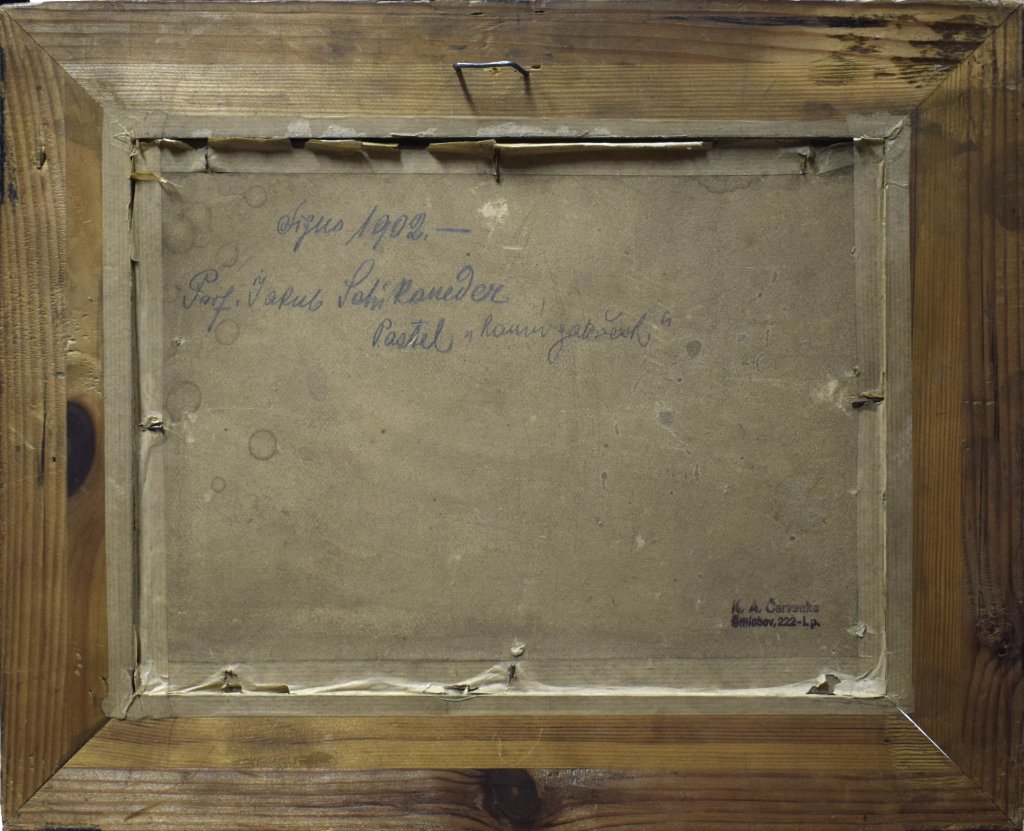 Signo 1902.—
Prof. Jakub Schikaneder
Pastel „Ranní
K. A. Červenka
Smíchov, 222-I.p.